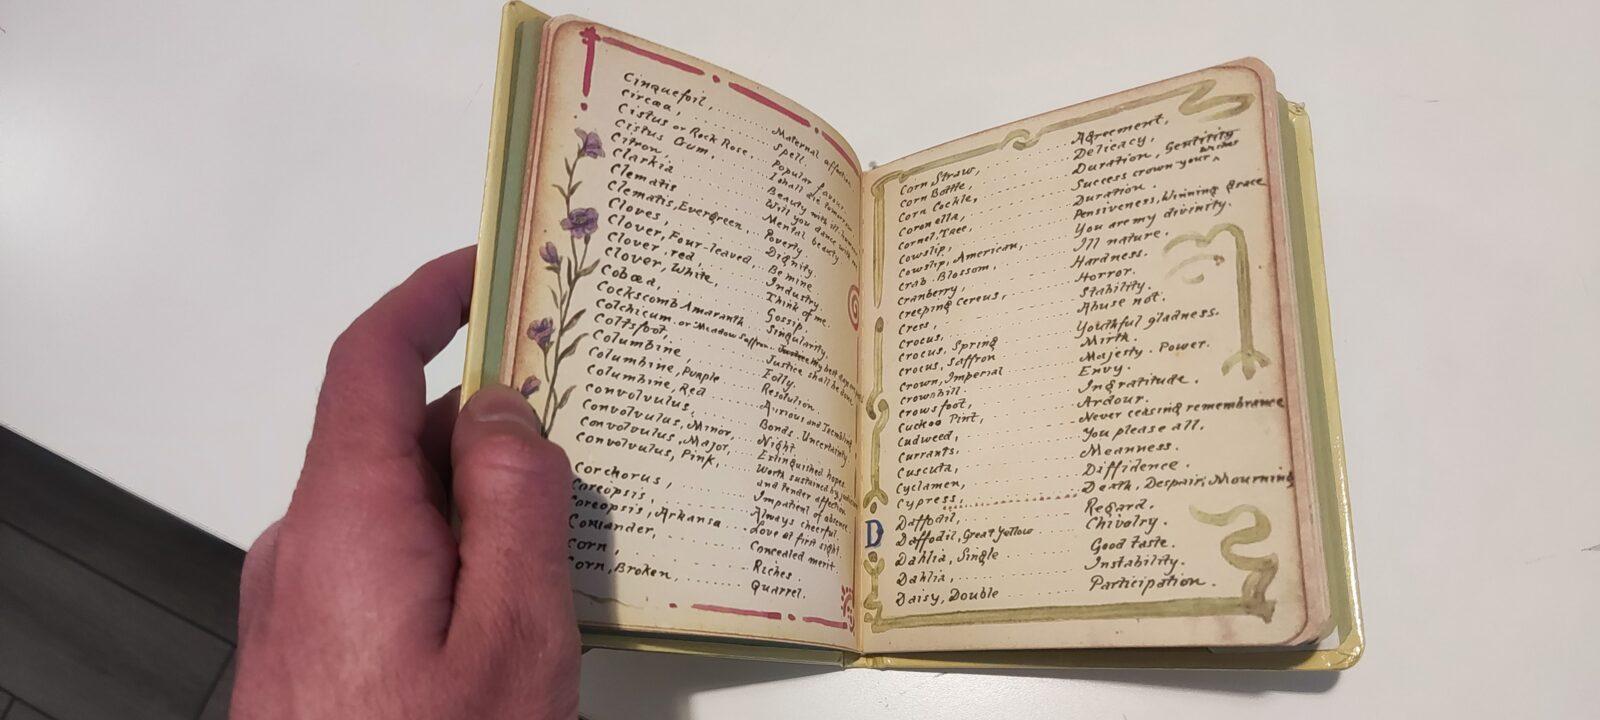 Cinquefoil, ........ Maternal affection
Circæa, ........ Spell.
Cistus or Rock Rose, ... Popular favour
Cistus Gum, ........ I shall die tomorrow
Citron, ........ Beauty with ill
Clarkia ........ Will you dance with me
Clematis ........ Mental beauty
Clematis, Evergreen, .. Poverty.
Cloves, ........ Dignity.
Clover, Four-leaved, .. Be mine
Clover, red, ........ Industry
Clover, White, ...... Think of me.
Cobœa, ........ Gossip.
Cockscomb Amaranth Singularity,
Colchicum or Meadow Saffron My best days
Coltsfoot, ........ Justice shall be done
Columbine, ........ Folly.
Columbine, Purple .... Resolution
Columbine, Red ...... Anxious and Trembling
Convolvulus, ........ Bonds. Uncertainty
Convolvulus, Minor, .. Night
Convolvulus, Major, .. Extinguished hopes
Convolvulus, Pink, ... Worth sustained by
and tender affection
Corchorus, ........ Impatient of absence
Coreopsis, ........ Always cheerful.
Coreopsis, Arkansa .. Love at first sight.
Coriander, ........ Concealed merit.
Corn, ........ Riches.
Corn, Broken, ........ Quarrel.
Corn Straw, ........ Agreement,
Corn Bottle, ........ Delicacy,
Corn Cockle, ........ Duration, Gentility
Coronella, ........ Success crown your wishes
Cornel, Tree, ........ Duration.
Cowslip, ........ Pensiveness, Winning grace
Cowslip, American, .... You are my divinity.
Crab Blossom, ........ Ill nature.
Cranberry, ........ Hardness.
Creeping Cereus, ...... Horror.
Cress, ........ Stability.
Crocus, ........ Abuse not.
Crocus, Spring ........ Youthful gladness.
Crocus, Saffron ........ Mirth.
Crown, Imperial ........ Majesty. Power.
Crowsbill. ........ Envy.
Crowsfoot, ........ Ingratitude.
Cuckoo Pint, ........ Ardour.
Cudweed, ........ Never ceasing remembrance
Currants. ........ You please all.
Cuscuta, ........ Meanness.
Cyclamen, ........ Diffidence.
Cypress, ........ Death, Despair, Mourning
D
Daffodil, ........ Regard.
Daffodil, Great Yellow .... Chivalry.
Dahlia, Single ........ Good taste.
Dahlia, ........ Instability.
Daisy, Double ........ Participation.